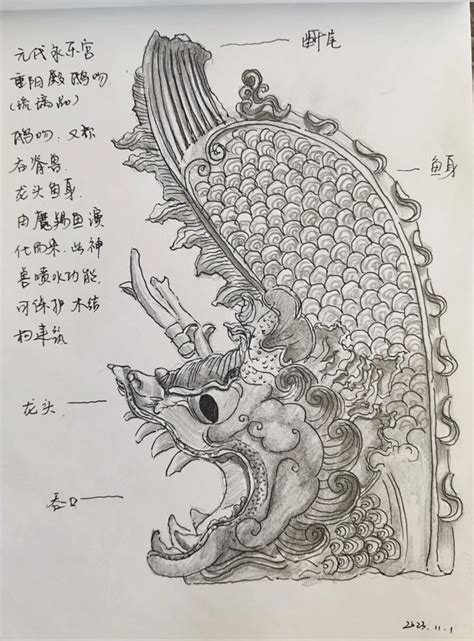 元代永乐宫
重阳殿鸱吻.
(琉璃品)
鸱吻，又称
吞脊兽.
龙头鱼身
由魔羯鱼演
化而来. 此神
兽喷水功能,
可保护木结
构建筑
断尾
鱼身
龙头
吞口
2023.11.1